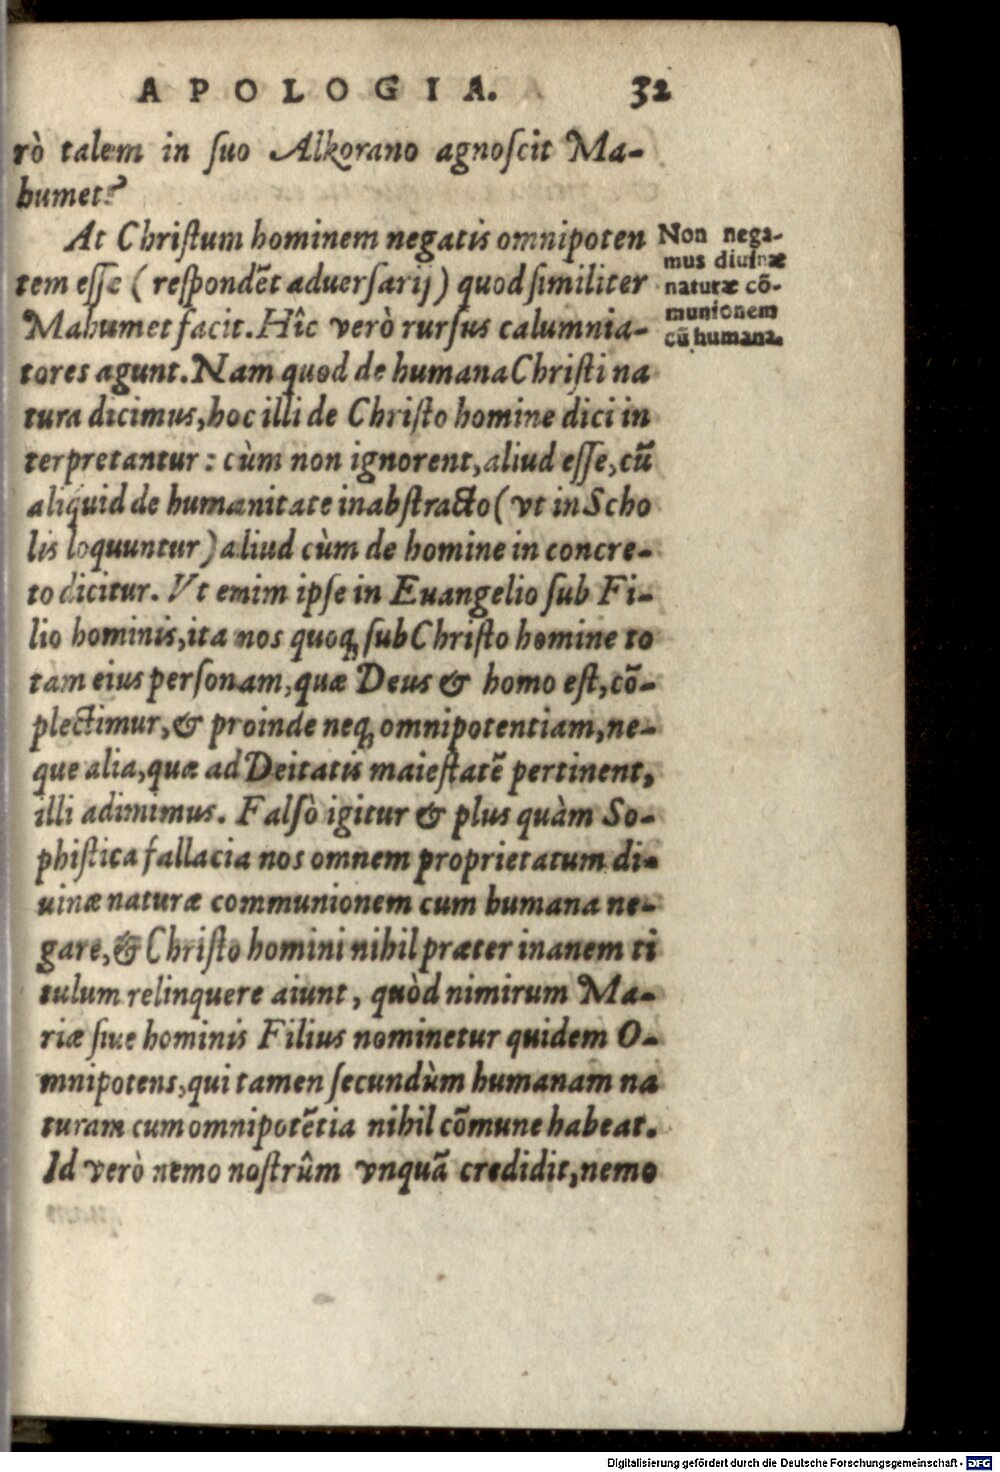 APOLOGIA. 32
rò talem in ſuo Alkorano agnoſcit Ma-
humet?
At Chriſtum hominem negatis omnipoten
tem eſſe (reſpondēt aduerſarij) quod ſimiliter
Mahumet facit. Hîc verò rurſus calumnia-
tores agunt. Nam quod de humana Chriſti na
tura dicimus, hoc illi de Chriſto homine dici in
terpretantur: cùm non ignorent, aliud eſſe, cū
aliquid de humanitate in abſtracto (vt in Scho
lis loquuntur) aliud cùm de homine in concre-
to dicitur. Vt enim ipſe in Euangelio ſub Fi-
lio hominis, ita nos quoq; ſub Chriſto homine to
tam eius perſonam, quæ Deus & homo eſt, cō-
plectimur, & proinde neq; omnipotentiam, ne-
que alia, quæ ad Deitatis maieſtatē pertinent,
illi adimimus. Falſò igitur & plus quàm So-
phiſtica fallacia nos omnem proprietatum di-
uinæ naturæ communionem cum humana ne-
gare, & Chriſto homini nihil præter inanem ti
tulum relinquere aiunt, quòd nimirum Ma-
riæ ſiue hominis Filius nominetur quidem O-
mnipotens, qui tamen ſecundùm humanam na
turam cum omnipotētia nihil cōmune habeat.
Id verò nemo noſtrûm vnquā credidit, nemo
Non nega-
mus diuinæ
naturæ cō-
munionem
cū humana.
Digitalisierung gefördert durch die Deutsche Forschungsgemeinschaft - DFG